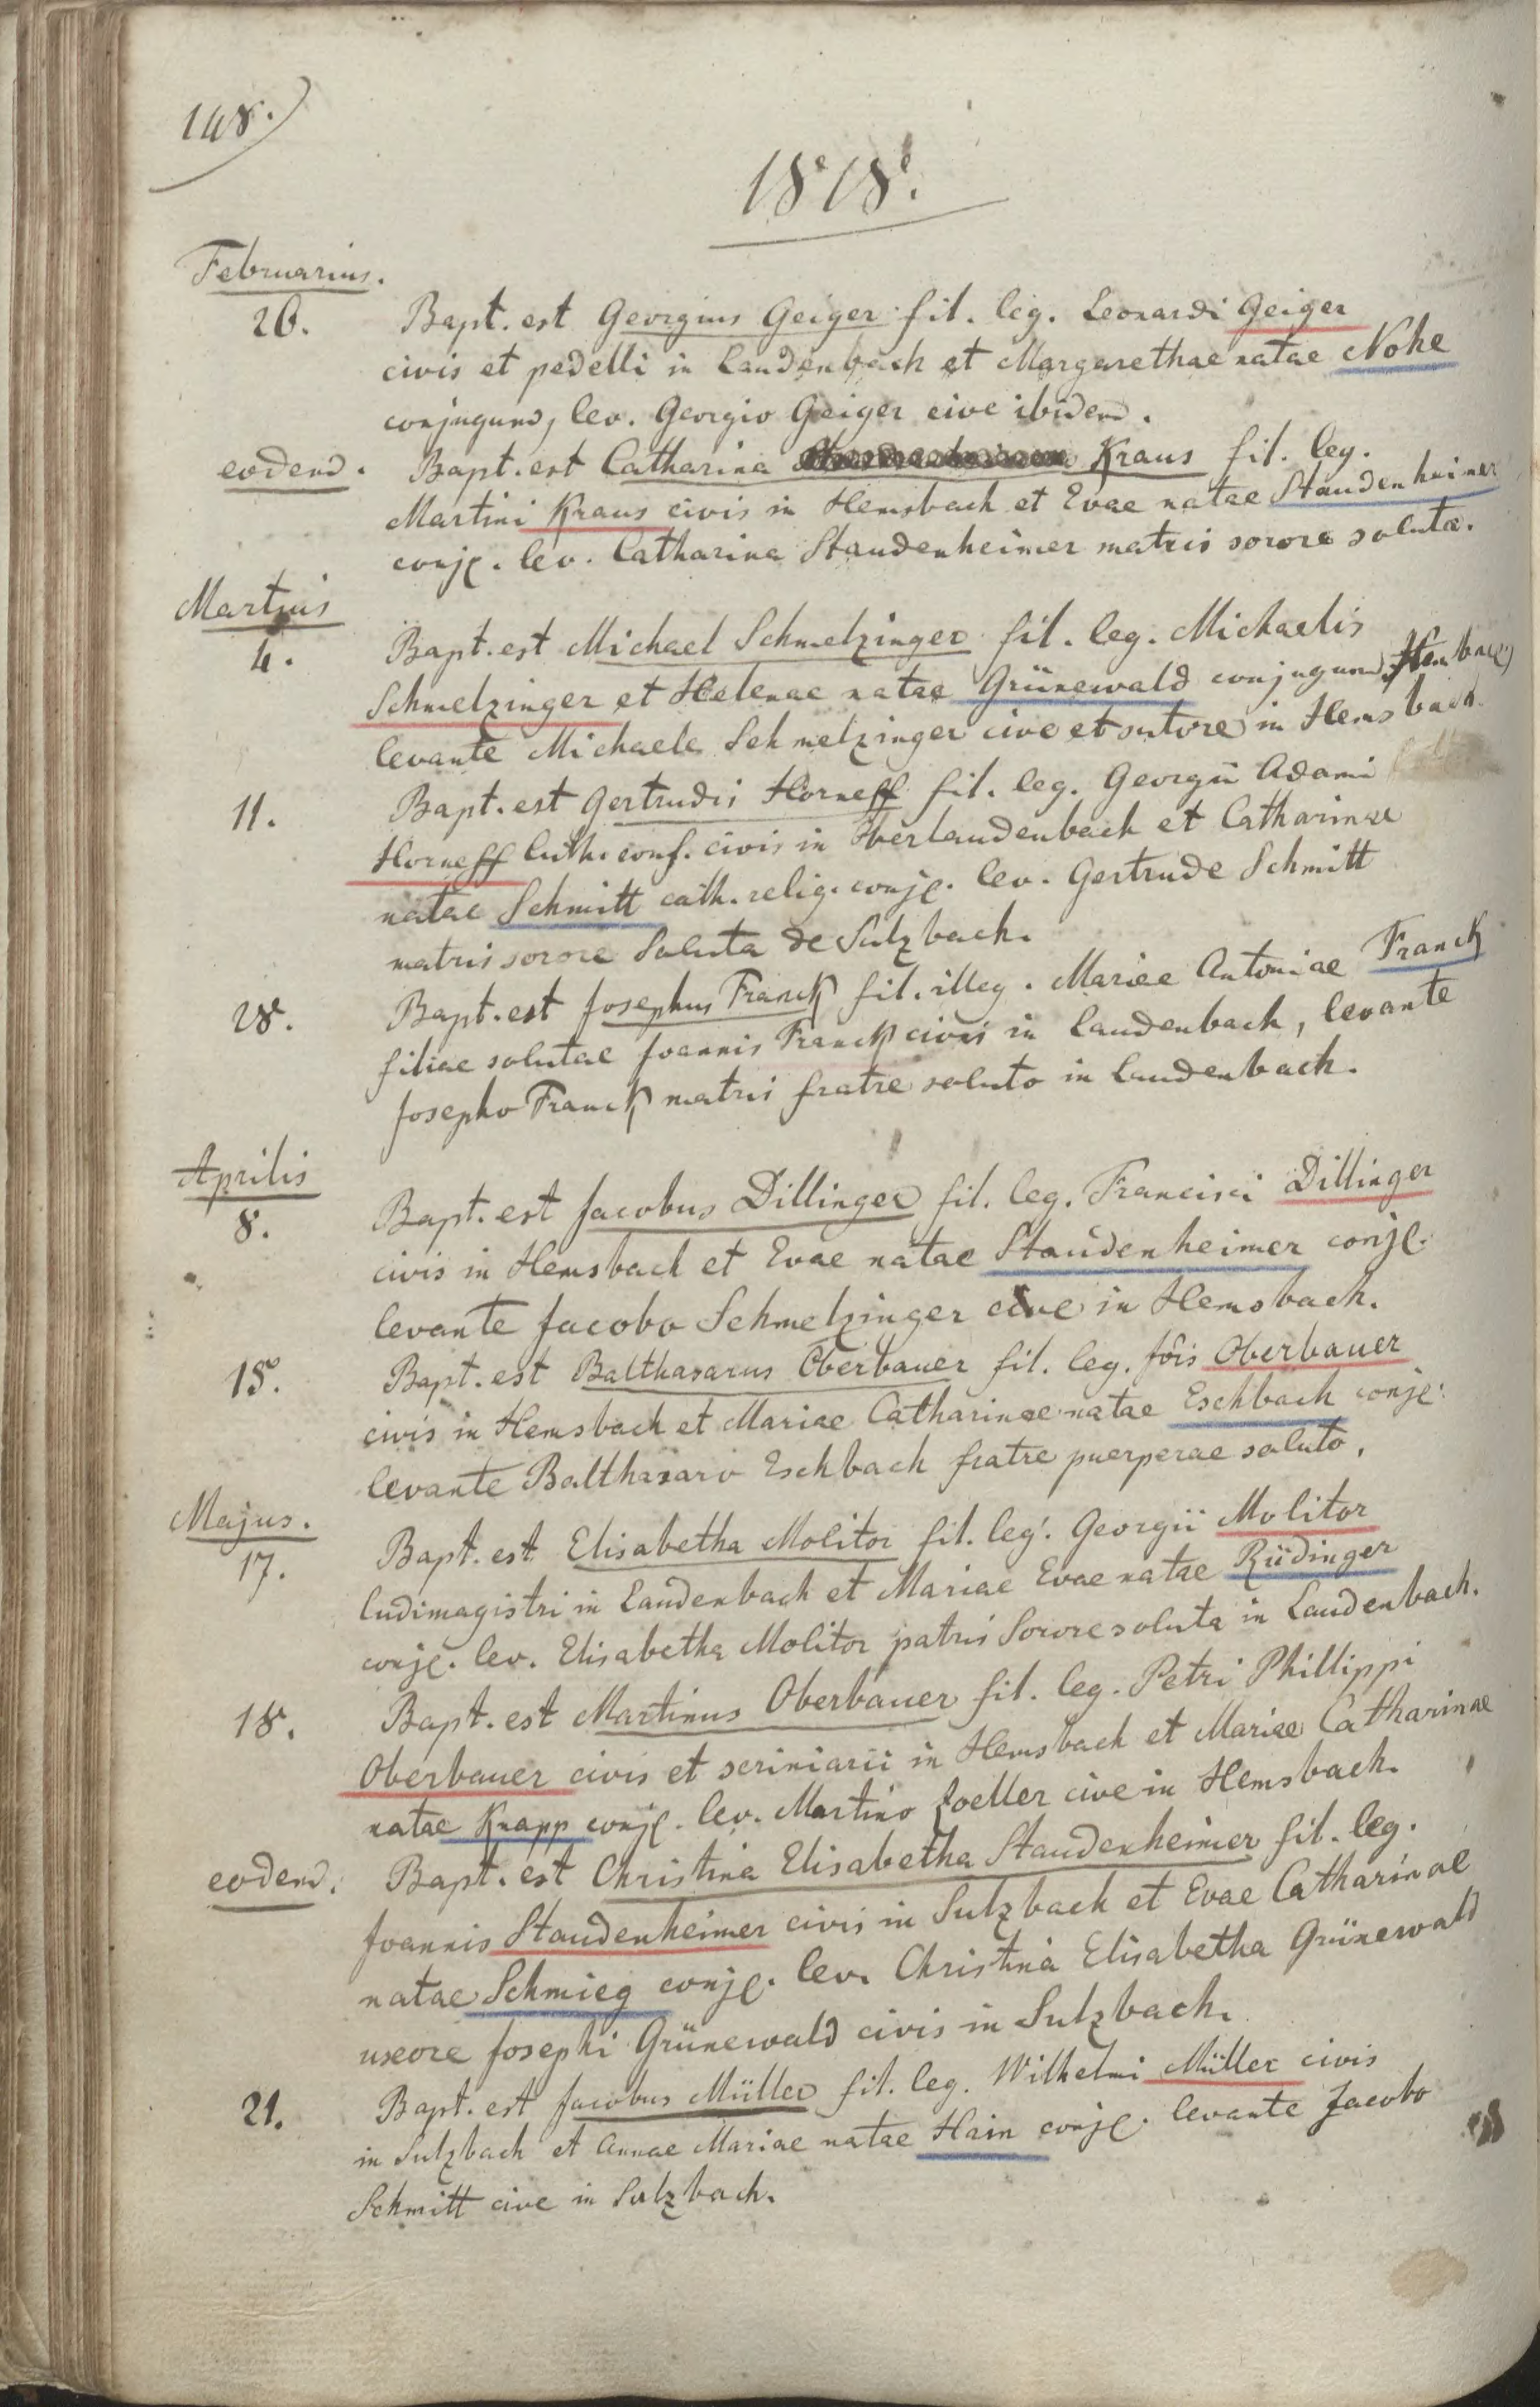 148.
1818.
Februarius.
26. Bapt. est Georgius Geiger fil. leg. Leonardi Geiger
civis et pedelli in Laudenbach et Margarethae natae Nohe
conjugum, lev. Georgio Geiger cive ibidem.
eodem. Bapt. est Catharina Kraus fil. leg.
Martini Kraus civis in Hemsbach et Evae natae Staudenheimer
conjg. lev. Catharina Staudenheimer matris sorore soluta.
Martius
4. Bapt. est Michael Schmelzinger fil. leg. Michaelis
Schmelzinger et Helenae natae Grünewald conjugum
levante Michaele Schmelzinger cive et sutore in Hemsbach
11. Bapt. est Gertrudis Horneff fil. leg. Georgii Adami
Horneff luth. conf. civis in Oberlaudenbach et Catharinae
natae Schmitt cath. relig. conjg. lev. Gertrude Schmitt
matris sorore soluta de Sulzbach.
28. Bapt. est Josephus Franck fil. illeg. Mariae Antoniae Franck
filiae solutae Joannis Franck civis in Laudenbach, levante
Josepho Franck matris fratre soluto in Laudenbach.
Aprilis
8. Bapt. est Jacobus Dillinger fil. leg. Francisci Dillinger
civis in Hemsbach et Evae natae Staudenheimer conjg.
levante Jacobo Schmelzinger cive in Hemsbach.
15. Bapt. est Balthasarus Oberbauer fil. leg. Jois Oberbauer
civis in Hemsbach et Mariae Catharinae natae Eschbach conjg.
levante Balthasaro Eschbach fratre puerperae soluto.
Majus.
17. Bapt. est Elisabetha Molitor fil. leg. Georgii Molitor
ludimagistri in Laudenbach et Mariae Evae natae Rüdinger
conjg. lev. Elisabetha Molitor patris sorore soluta in Laudenbach.
18. Bapt. est Martinus Oberbauer fil. leg. Petri Phillippi
Oberbauer civis et scriniarii in Hemsbach et Mariae Catharinae
natae Knapp conjg. lev. Martino Zoeller cive in Hemsbach.
eodem. Bapt. est Christina Elisabetha Staudenheimer fil. leg.
Joannis Staudenheimer civis in Sulzbach et Evae Catharinae
natae Schmieg conjg. lev. Christina Elisabetha Grünewald
uxore Josephi Grünewald civis in Sulzbach.
21. Bapt. est Jacobus Müller fil. leg. Wilhelmi Müller civis
in Sulzbach et Annae Mariae natae Hain conjg. levante Jacobo
Schmitt cive in Sulzbach.